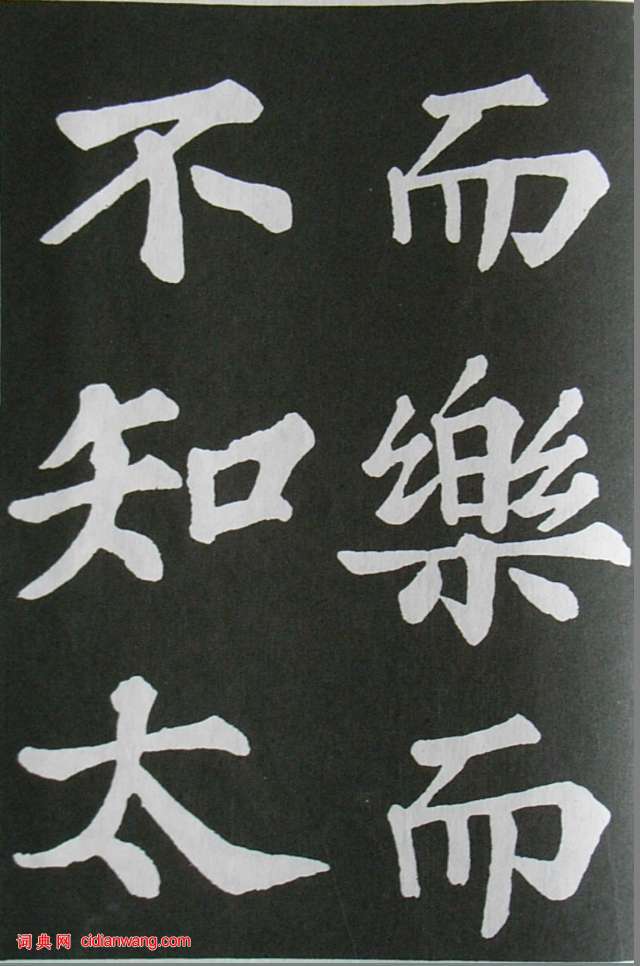 而樂而
不知太
词典网 cidianwang.com